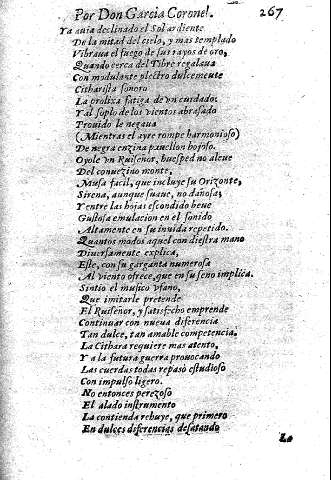 Por Don Garcia Coronel. 267
Ya auia declinado el Sol ardiente
De la mitad del cielo, y mas templado
Vibraua el fuego de sus rayos de oro,
Quando cerca del Tibre regalaua
Con modulante plectro dulcemente
Citharista sonoro
La prolixa fatiga de vn cuidado:
Y al soplo de los vientos abrasado
Trouido le negaua
(Mientras el ayre rompe harmonioso)
De negra enzina pauellon hojoso.
Oyole vn Ruiseñor, huesped no aleue
Del conuezino monte,
Musa facil, que incluye su Orizonte,
Sirena, aunque suaue, no dañosa;
Y entre las hojas escondido beue
Gustosa emulacion en el sonido
Altamente en su inuida repetido.
Quantos modos aquel con diestra mano
Diuersamente explica,
Este, con su garganta numerosa
Al viento ofrece, que en su seno implica.
Sintiò el musico vfano,
Que imitarle pretende
El Ruiseñor, y satisfecho emprende
Continuar con nueua diferencia
Tan dulce, tan amable competencia.
La Cithara requiere mas atento,
Y a la futura guerra prouocando
Las cuerdas todas repasò estudioso
Con impulso ligero.
No entonces perezoso
El alado instrumento
La contienda rehuye, que primero
En dulces diferencias desatando
Lo